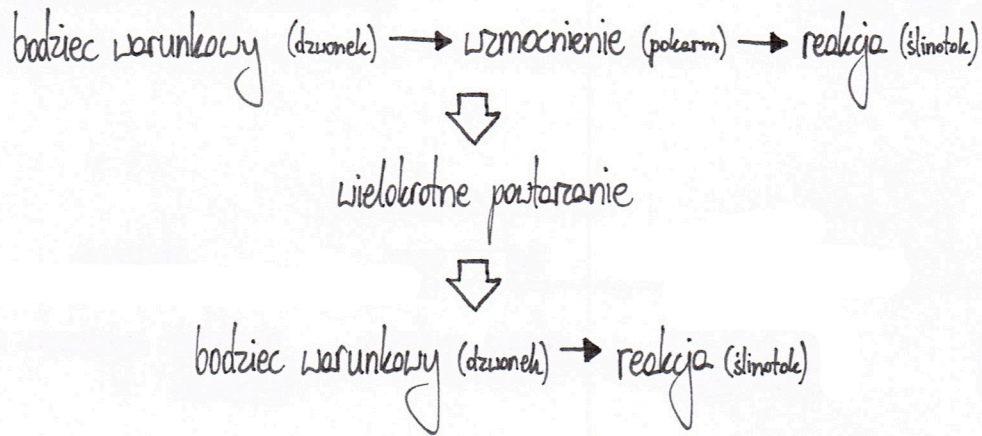 bodziec warunkowy (dzwonek) → wzmocnienie (pokarm) → reakcja (ślinotok)
wielokrotne powtarzanie
bodziec warunkowy (dzwonek) → reakcja (ślinotok)